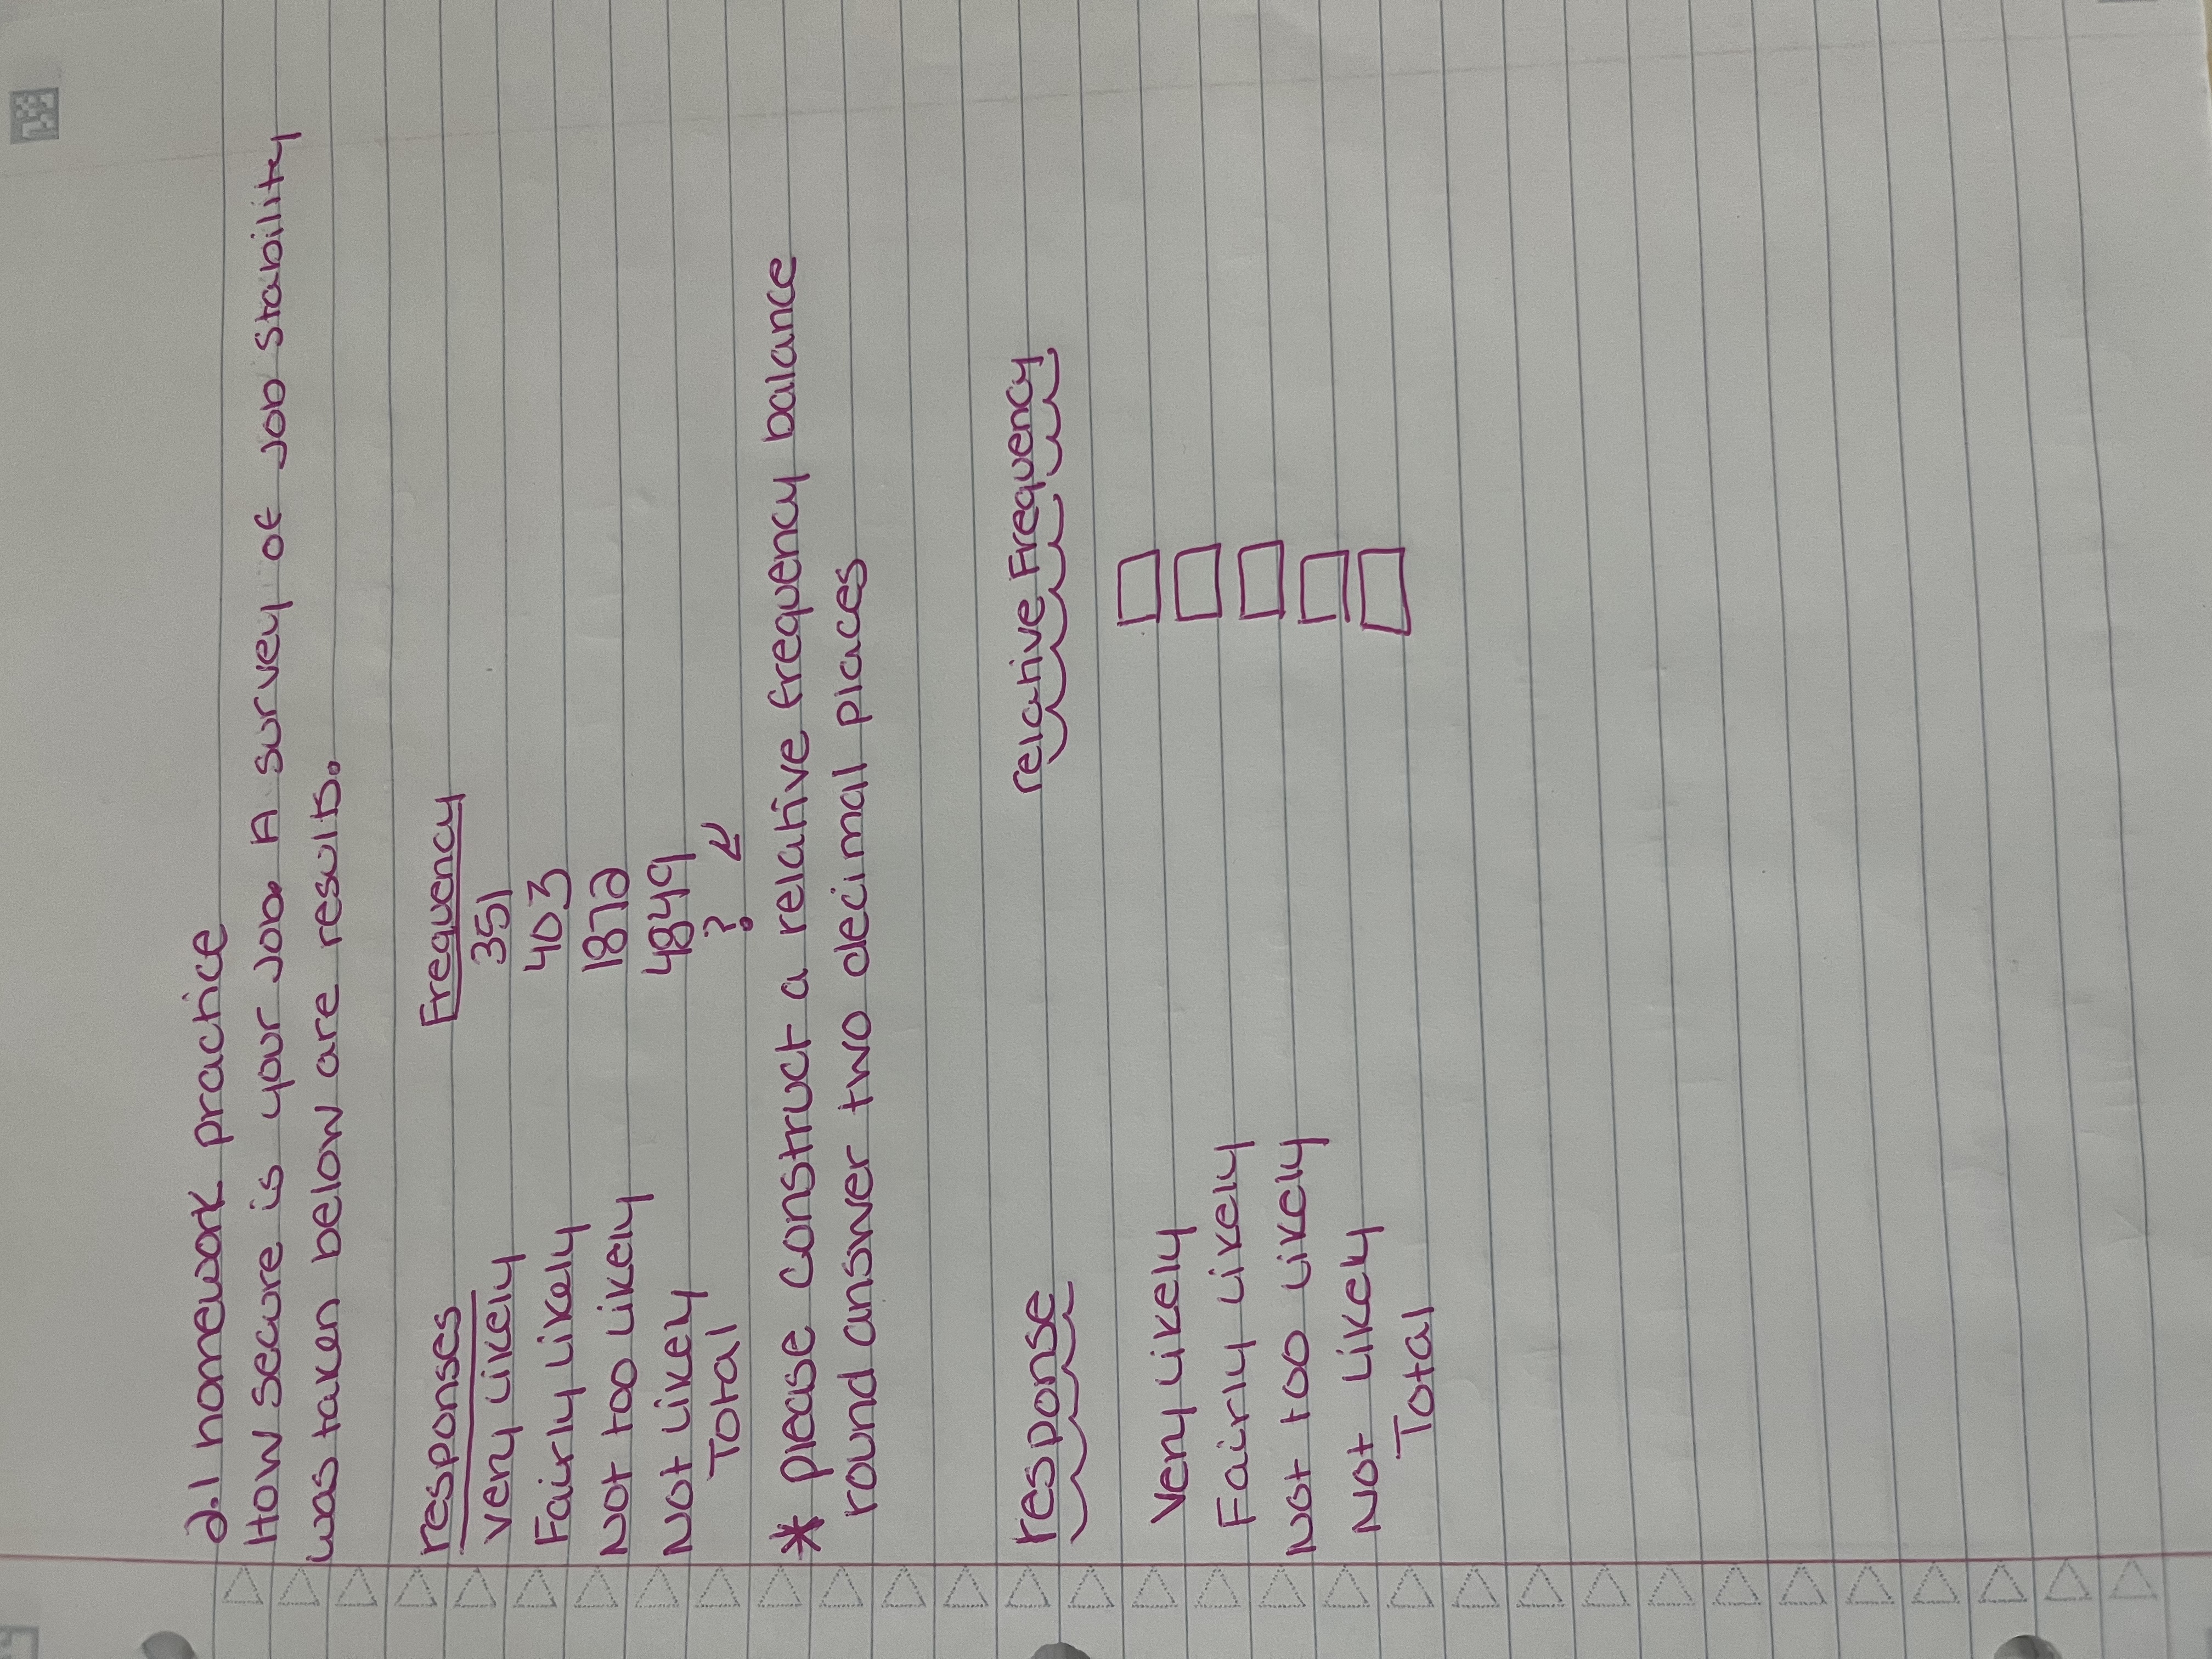 2.1 homework practice
How secure is your job. A survey of job stability
was taken below are results.
responses Frequency
very likely 351
Fairly likely 403
Not too likely 1872
Not likely 4849
Total ?
* please construct a relative frequency balance
round answer two decimal places
response relative Frequency
Very likely
Fairly likely
Not too likely
Not likely
Total